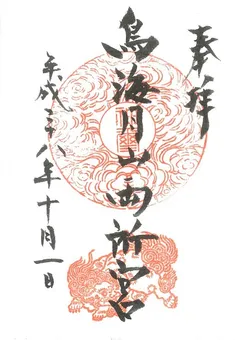 奉拝
鳥海月山両所宮
平成二八年十月一日